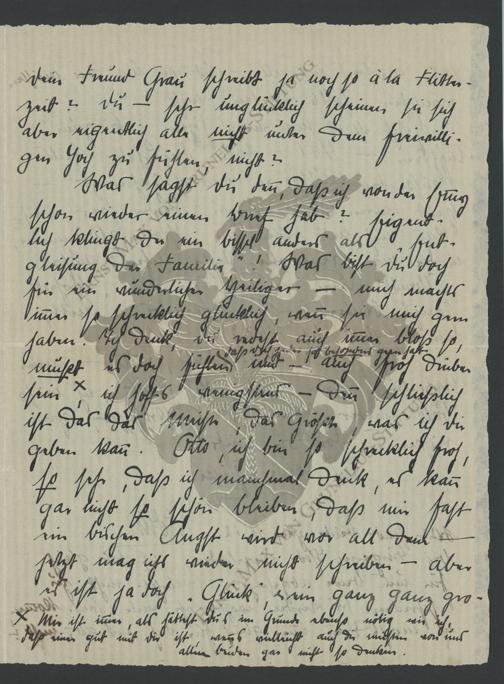 dein Freund Grau schreibt ja noch so à la Flitter-
zeit? Du — sehr unglücklich scheinen sie sich
aber eigentlich alle nicht unter dem freiwilli-
gen Joch zu fühlen, nicht?
Was sagst du denn, daß ich von der
schon wieder einen Brief hab? Eigent-
lich klingt der ein bissl anders als "Ent-
gleisung der Familie"! Was bist du doch
für ein wunderlicher Heiliger — mich machts
immer so schrecklich glücklich, wenn sie mich gern
haben. Ich denk, du machst auch immer bloß so,
mußt es doch fühlen und — auch froh drüber
daß dich jeder so besonders gern hat
sein ×, ich hoffs wenigstens — denn schließlich
ist das das Meiste, das Größte was ich dir
geben kann. Otto, ich bin so schrecklich froh,
so sehr, daß ich manchmal denk, es kann
gar nicht so schön bleiben, daß mir fast
ein bischen Angst wird vor all dem —
jetzt mag ichs wieder nicht schreiben — aber
es ist ja doch "Glück", ein ganz ganz gro-
× Mir ist immer, als hättest du's im Grunde ebenso nötig wie ich,
daß einer gut mit dir ist, wenns vielleicht auch die meisten von uns
allen beiden gar nicht so denken.